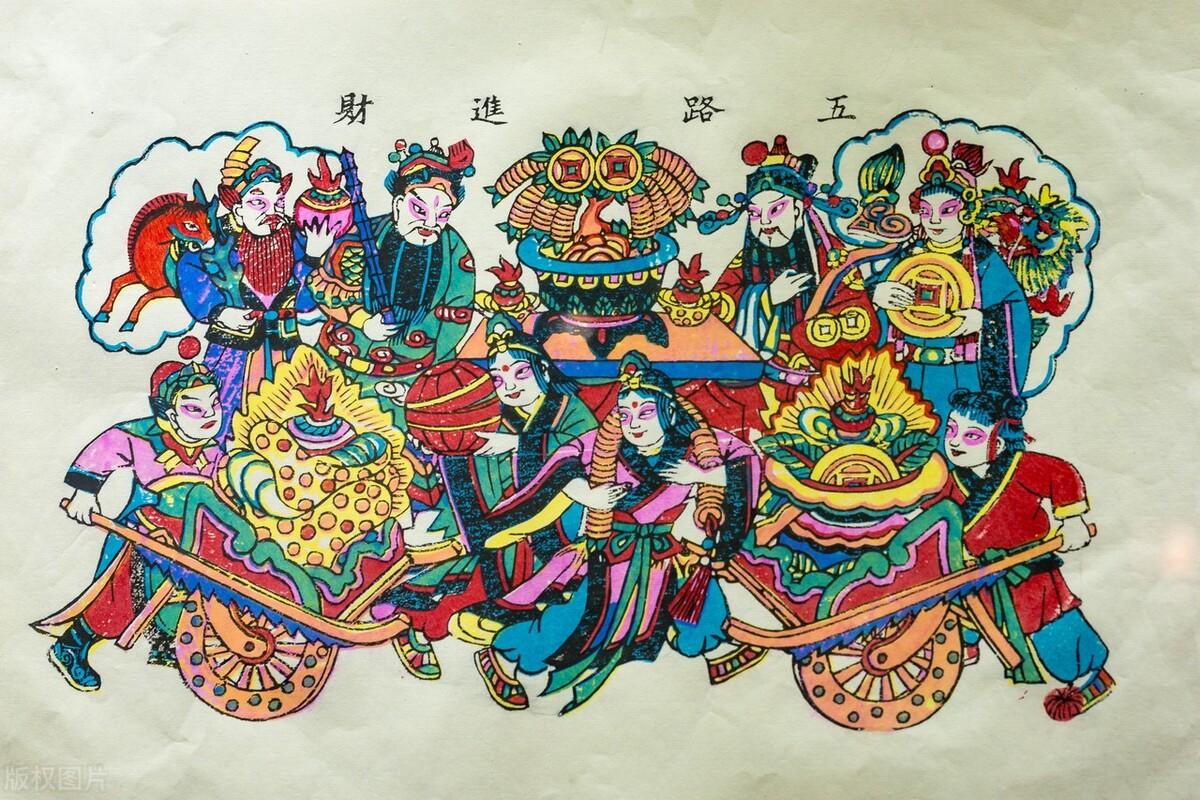 五路進財
版权图片